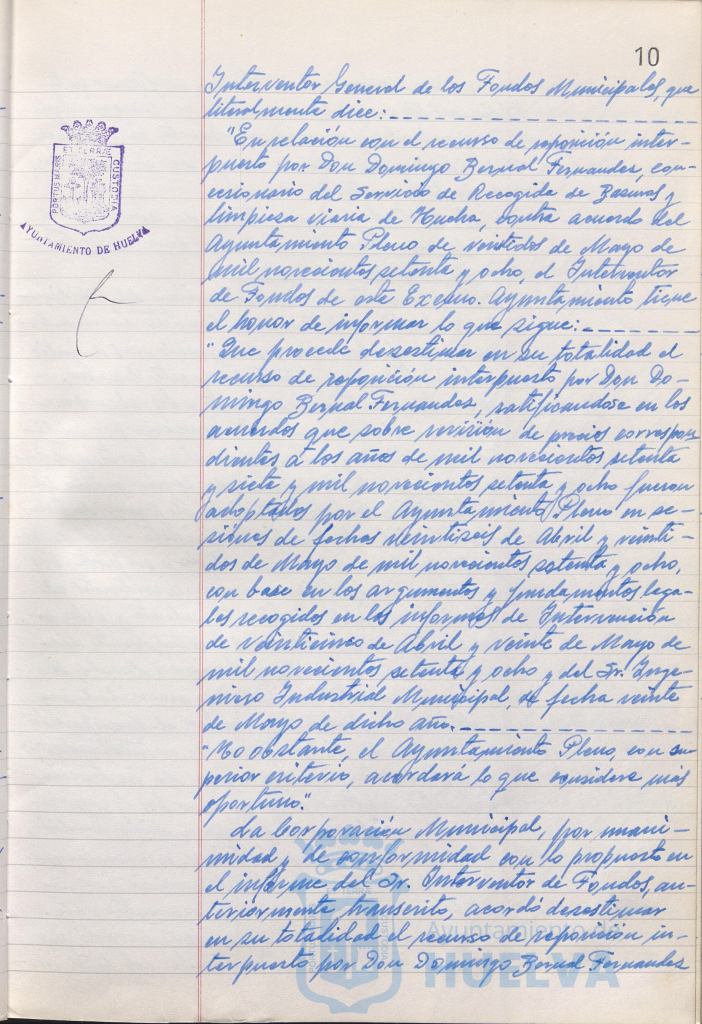 10
Interventor General de los Fondos Municipales, que
literalmente dice:
"En relación con el recurso de reposición inter-
puesto por Don Domingo Bernal Fernandez, con-
cesionario del Servicio de Recogida de Basuras y
limpieza viaria de Huelva, contra acuerdo del
Ayuntamiento Pleno de veintidos de Mayo de
mil novecientos setenta y ocho, el Interventor
de Fondos de este Excmo. Ayuntamiento tiene
el honor de informar lo que sigue:
"Que procede desestimar en su totalidad el
recurso de reposición interpuesto por Don Do-
mingo Bernal Fernandez, ratificandose en los
acuerdos que sobre revisión de precios correspon
dientes a los años de mil novecientos setenta
y siete y mil novecientos setenta y ocho fueron
adoptados por el Ayuntamiento Pleno en se-
siones de fechas veintiseis de Abril y veinti-
dos de Mayo de mil novecientos setenta y ocho,
con base en los argumentos y fundamentos lega-
les recogidos en los informes de Intervención
de veinticinco de Abril y veinte de Mayo de
mil novecientos setenta y ocho y del Sr. Inge-
niero Industrial Municipal, de fecha veinte
de Mayo de dicho año.
"No obstante, el Ayuntamiento Pleno, con su
perior criterio, acordará lo que considere más
oportuno".
La Corporación Municipal, por unani-
midad y de conformidad con lo propuesto en
el informe del Sr. Interventor de Fondos, an-
teriormente transcrito, acordó desestimar
en su totalidad el recurso de reposición in-
terpuesto por Don Domingo Bernal Fernandez
PORTUS MARIS ET TERRAE CUSTODIA
AYUNTAMIENTO DE HUELVA
Ayuntamiento de
HUELVA